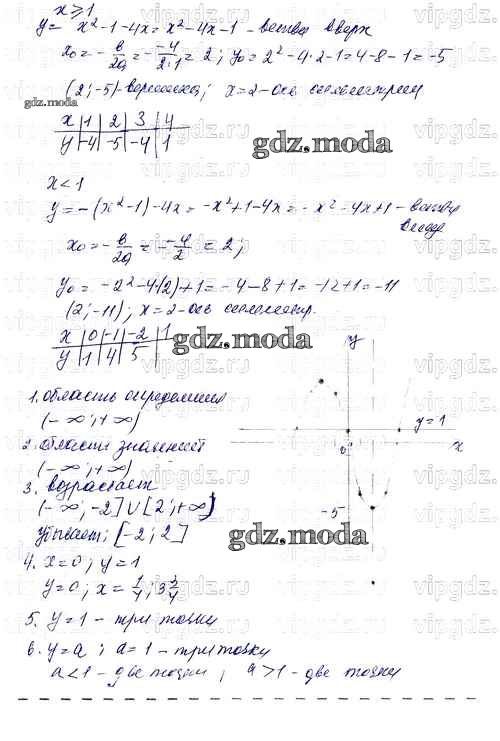 x≥1
y= x²-1-4x= x²-4x-1 - ветви вверх
x₀=-в/2а=-(-4)/(2·1)=2; y₀=2²-4·2-1=4-8-1=-5
(2;-5)-вершина; x=2-ось симметрии
gdz.moda
x|1|2|3|4
y|-4|-5|-4|1
gdz.moda
x<1
y=-(x²-1)-4x=-x²+1-4x=-x²-4x+1-ветви
вниз
x₀=-в/2а=-(-4)/2=2;
y₀=-2²-4(2)+1=-4-8+1=-12+1=-11
(2;-11); x=2-ось симметр.
x|0|-1|-2|1
y|1|4|5
gdz.moda
y
1. область определения
(-∞;+∞)
y=1
0
x
2. области значений
(-∞;+∞)
3. возрастает
(-∞,-2]∪[2;+∞)
-5
убывает; [-2;2]
gdz.moda
4. x=0; y=1
y=0; x=1/4; 3 3/4
5. y=1 - три точки
6. y=a; a=1 - три точки
a<1 - две точки; a>1 - две точки